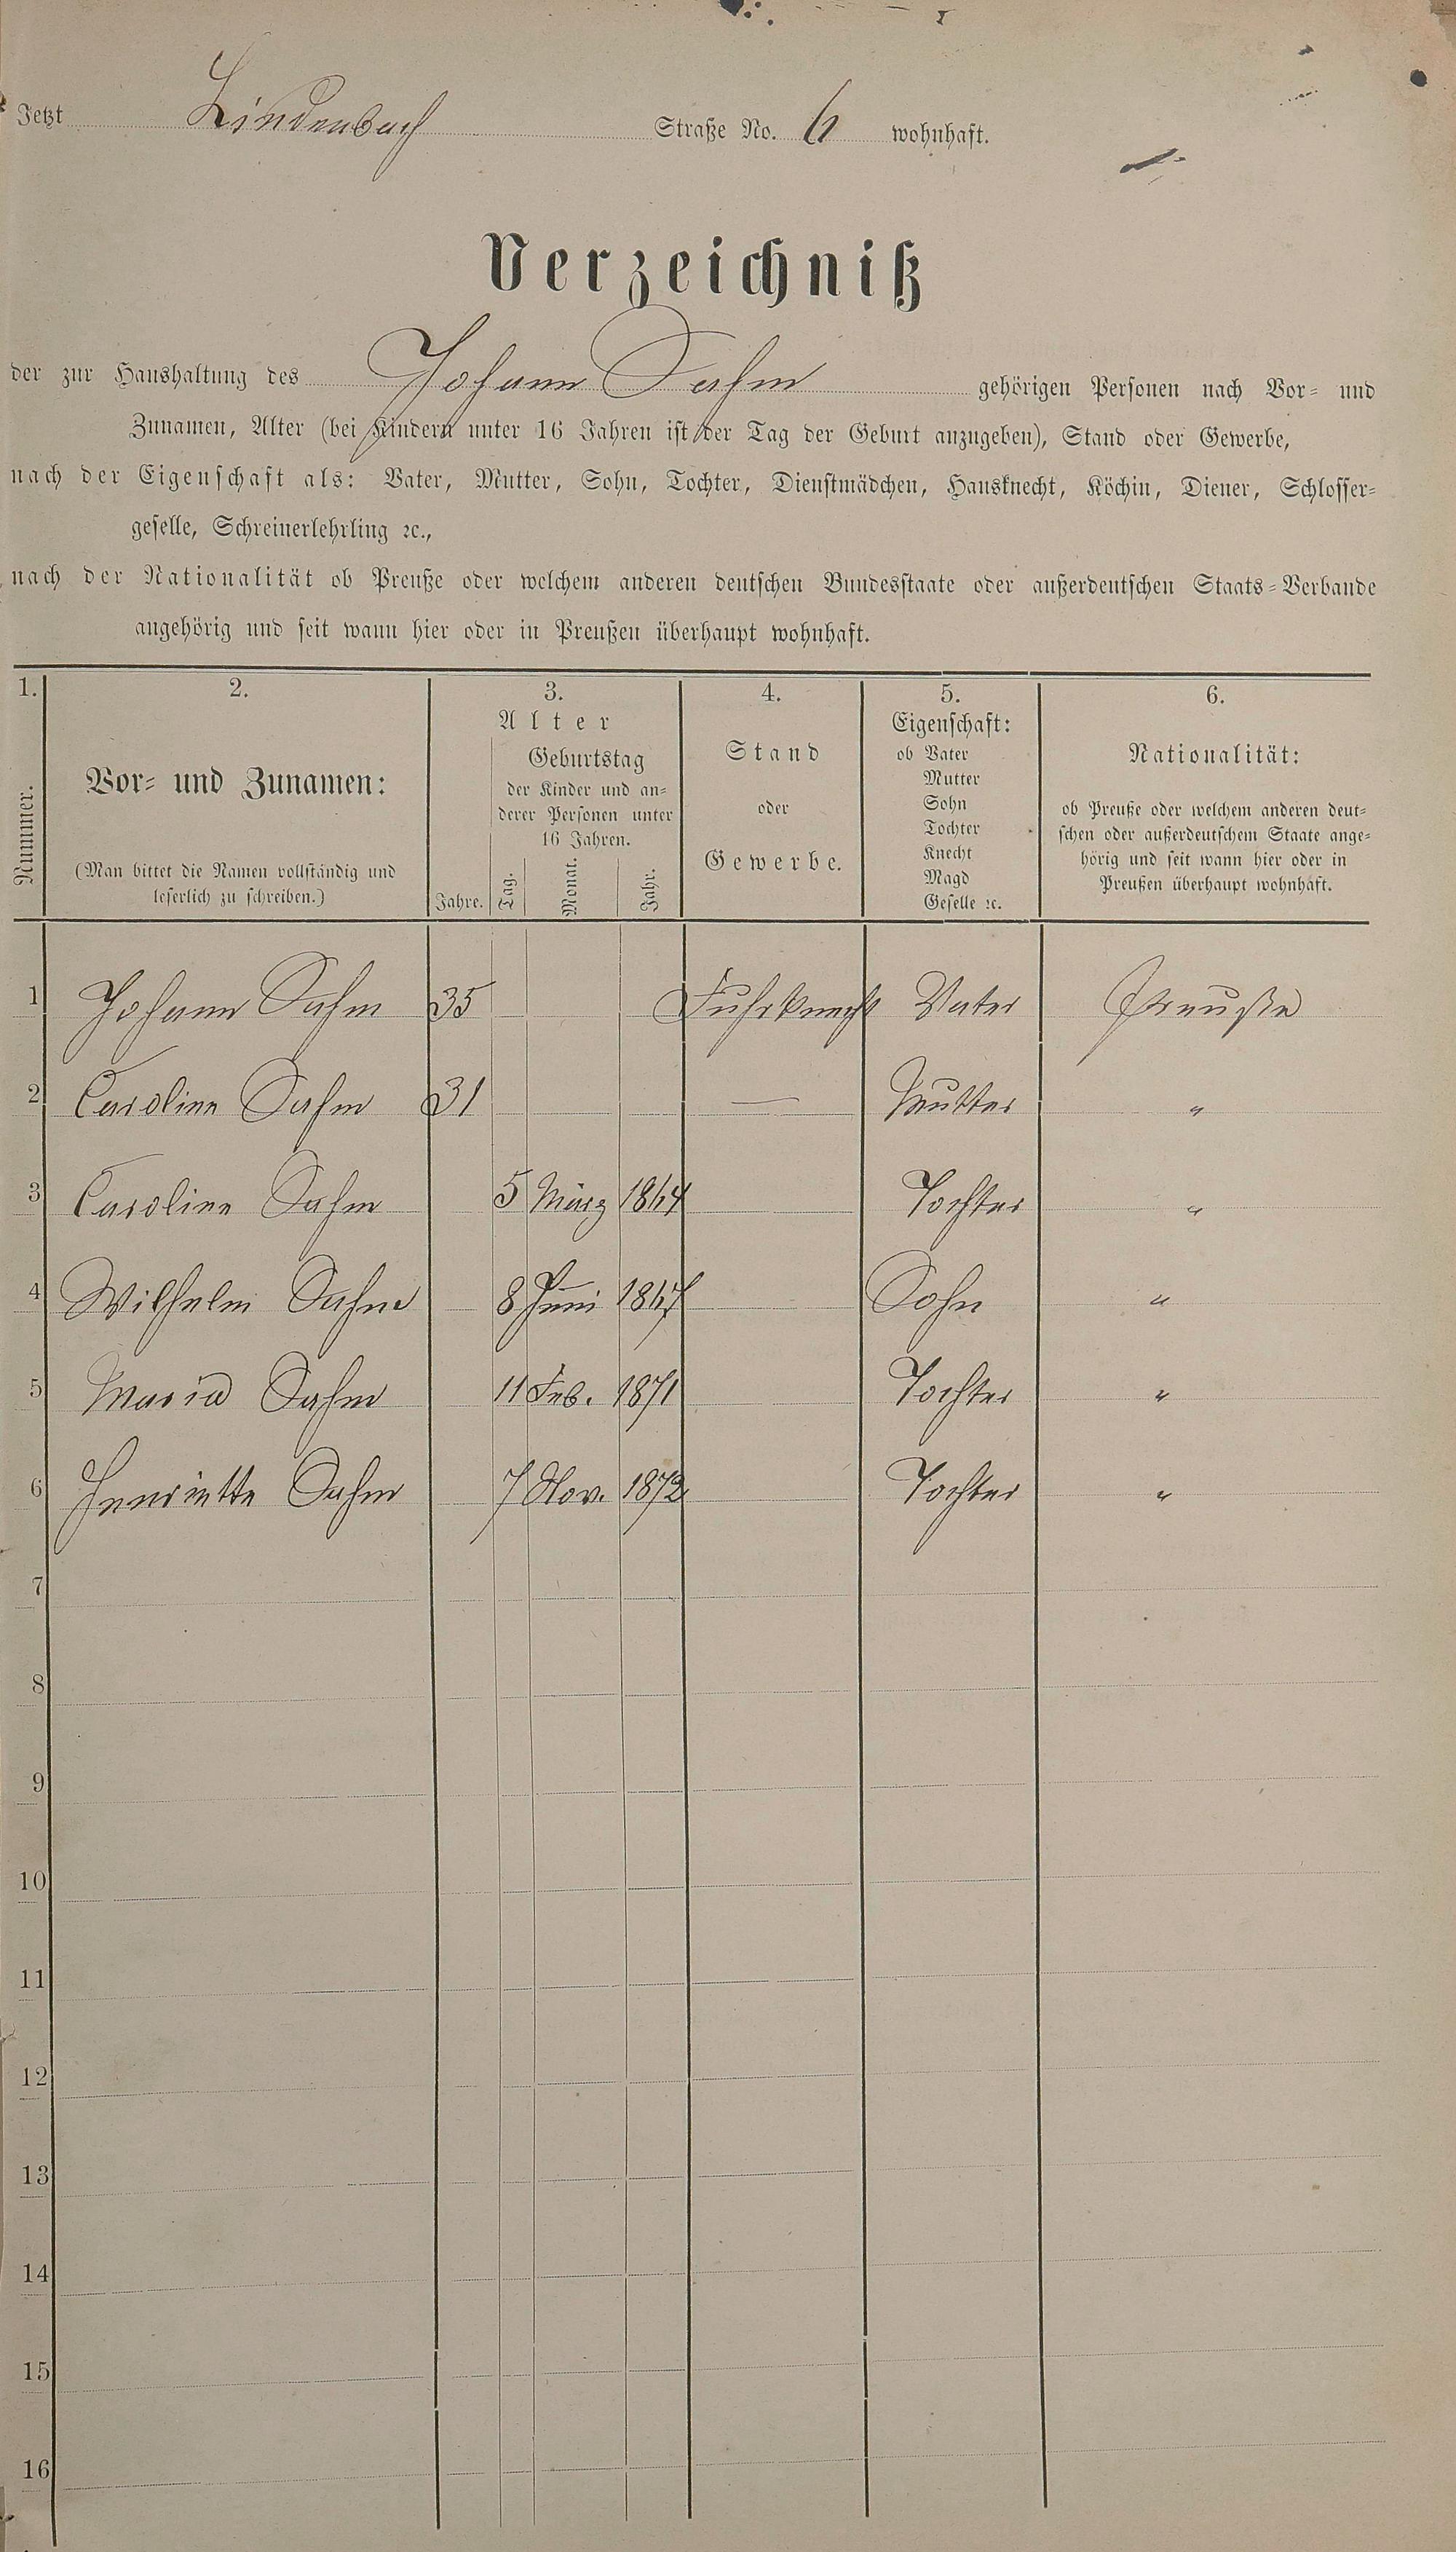 Jetzt Lindenbach Straße No. 6 wohnhaft.
Verzeichniß
der zur Haushaltung des Johann Sahm gehörigen Personen nach Vor- und
Zunamen, Alter (bei Kindern unter 16 Jahren ist der Tag der Geburt anzugeben), Stand oder Gewerbe,
nach der Eigenschaft als: Vater, Mutter, Sohn, Tochter, Dienstmädchen, Hausknecht, Köchin, Diener, Schlosser-
geselle, Schreinerlehrling ꝛc.,
nach der Nationalität ob Preuße oder welchem anderen deutschen Bundesstaate oder außerdeutschen Staats-Verbande
angehörig und seit wann hier oder in Preußen überhaupt wohnhaft.
1.
Nummer.
2.
Vor- und Zunamen:
(Man bittet die Namen vollständig und
leserlich zu schreiben.)
3.
Alter
Jahre.
Geburtstag
der Kinder und an-
derer Personen unter
16 Jahren.
Tag.
Monat.
Jahr.
4.
Stand
oder
Gewerbe.
5.
Eigenschaft:
ob Vater
Mutter
Sohn
Tochter
Knecht
Magd
Geselle ꝛc.
6.
Nationalität:
ob Preuße oder welchem anderen deut-
schen oder außerdeutschem Staate ange-
hörig und seit wann hier oder in
Preußen überhaupt wohnhaft.
1 Johann Sahm 35 Fuhrknecht Vater Preuße
2 Caroline Sahm 31 — Mutter "
3 Caroline Sahm 5 März 1864 Tochter "
4 Wilhelm Sahm 8 Juni 1867 Sohn "
5 Maria Sahm 11 Feb. 1871 Tochter "
6 Henriette Sahm 7 Nov. 1872 Tochter "
7
8
9
10
11
12
13
14
15
16